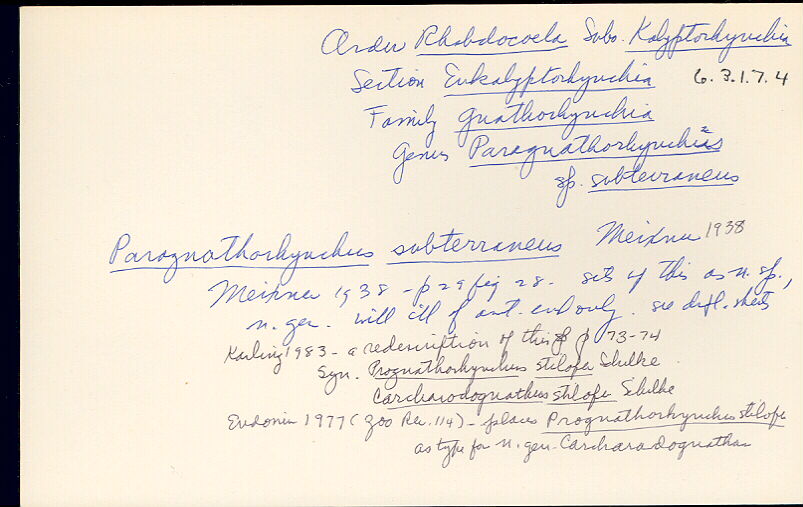 Order Rhabdocoela Subo. Kalyptorhynchia
Section Eukalyptorhynchia 6.3.1.7.4
Family Gnathorhynchia
Genus Paragnathorhynchus
sp. subterraneus
Paragnathorhynchus subterraneus Meixner 1938
Meixner 1938 - p 29 fig 28. sets up this as n. sp.,
n. gen. with ill of ant. end only. see sheets
Karling 1983 - a redescription of this sp p 73-74
Syn. Prognathorhynchus stilofer Schilke
Carcharodognathus stilofer Schilke
Evdonin 1977 (Zoo Rec. 114) - places Prognathorhynchus stilofer
as type for n. gen. Carcharadognathus